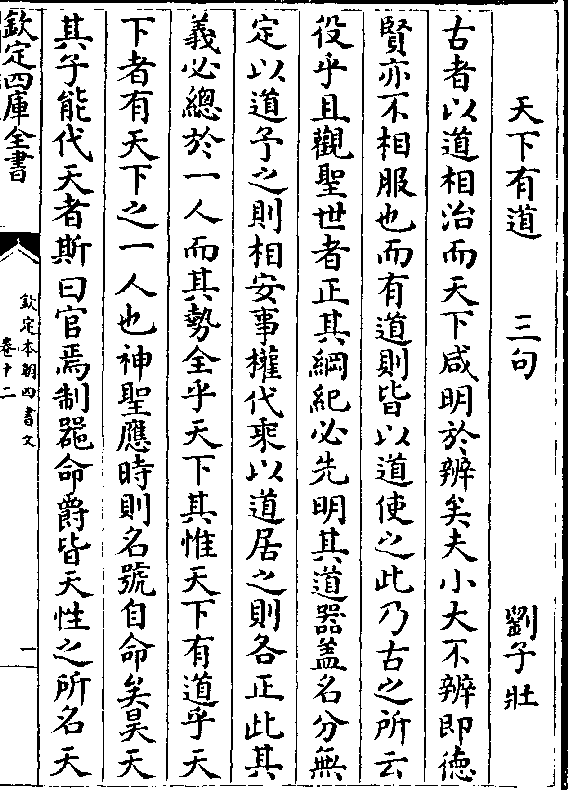 天下有道　三句　劉子壯
古者以道相治而天下咸明於辨矣夫小大不辨即德
賢亦不相服也而有道則皆以道使之此乃古之所云
役乎且觀聖世者正其綱紀必先明其道器蓋名分無
定以道予之則相安事權代乘以道居之則各正此其
義必總於一人而其勢全乎天下其惟天下有道乎天
下者有天下之一人也神聖應時則名號自命矣昊天
其子能代天者斯曰官焉制器命爵皆天性之所名天
欽定四庫全書
欽定本朝四書文
卷十二
一